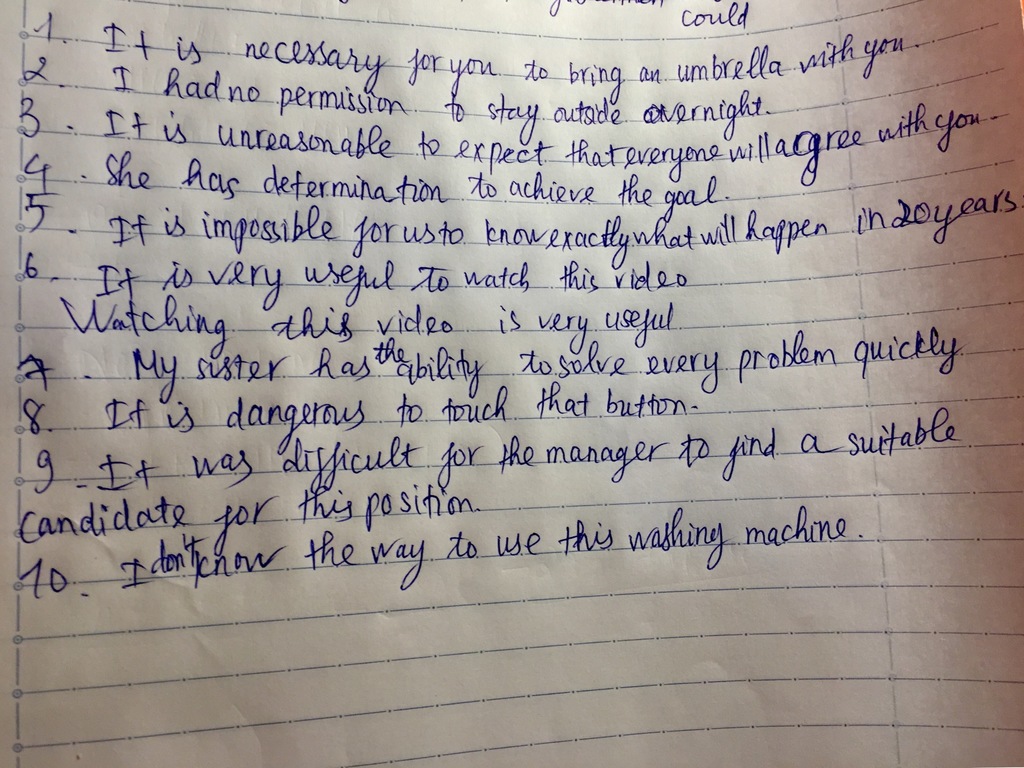 could
1. It is necessary for you to bring an umbrella with you.
2. I had no permission to stay outside overnight.
3. It is unreasonable to expect that everyone will agree with you.
4. She has determination to achieve the goal.
5. It is impossible for us to know exactly what will happen in 20 years.
6. It is very useful to watch this video
Watching this video is very useful
7. My sister has the ability to solve every problem quickly
8. It is dangerous to touch that button.
9. It was difficult for the manager to find a suitable
candidate for this position.
10. I don't know the way to use this washing machine.